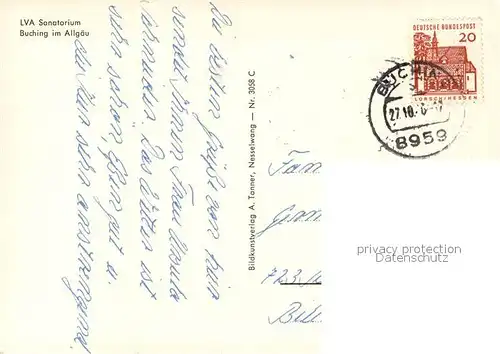 LVA Sanatorium
Buching im Allgäu
Die besten Grüße von
sendet Ihnen Frau Ursula
Das Wetter ist
sehr schön, Essen gut u.
die Kur sehr anstrengend.
Bildkunstverlag A. Tanner, Nesselwang — Nr. 3058 C
DEUTSCHE BUNDESPOST
20
LORSCH/HESSEN
BUCHIN
27.10.
8959
Fam
723
privacy protection
Datenschutz